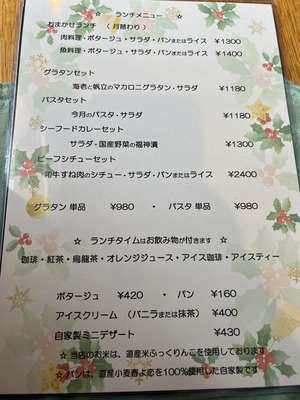 ☆ ランチメニュー ☆
おまかせランチ （月替わり）
肉料理・ポタージュ・サラダ・パンまたはライス ¥1300
魚料理・ポタージュ・サラダ・パンまたはライス ¥1400
グラタンセット
海老と帆立のマカロニグラタン・サラダ ¥1180
パスタセット
今月のパスタ・サラダ ¥1180
シーフードカレーセット
サラダ・国産野菜の福神漬 ¥1300
ビーフシチューセット
和牛すね肉のシチュー・サラダ・パンまたはライス ¥2400
グラタン 単品 ¥980 ・ パスタ 単品 ¥980
☆ ランチタイムはお飲み物が付きます ☆
珈琲・紅茶・烏龍茶・オレンジジュース・アイス珈琲・アイスティー
ポタージュ ¥420 ・ パン ¥160
アイスクリーム（バニラまたは抹茶） ¥400
自家製ミニデザート ¥430
☆ 当店のお米は、道産米ふっくりんこを使用しております ☆
☆ パンは、道産小麦春よ恋を100%使用した自家製です ☆